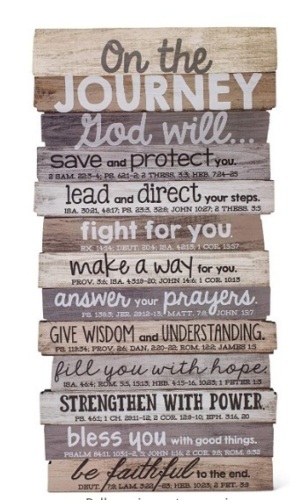 On the
JOURNEY
God will...
save and protect you.
2 SAM. 22:3-4; PS. 62:1-2; 2 THESS. 3:3; HEB. 7:24-25
lead and direct your steps.
ISA. 30:21, 48:17; PS. 23:3, 32:8; JOHN 10:27; 2 THESS. 3:5
fight for you.
EX. 14:14; DEUT. 20:4; ISA. 42:13; 1 COR. 15:57
make a way for you.
PROV. 3:6; ISA. 43:19-20; JOHN 14:6; 1 COR. 10:13
answer your prayers.
PS. 138:3; JER. 29:12-13; MATT. 7:7; JOHN 15:7
GIVE WISDOM and UNDERSTANDING.
PS. 119:34; PROV. 2:6; DAN. 2:20-22; ROM. 12:2; JAMES 1:5
fill you with hope.
ISA. 46:4; ROM. 5:5, 15:13; HEB. 4:15-16, 10:23; 1 PETER 1:3
STRENGTHEN WITH POWER.
PS. 46:1; 1 CH. 29:11-12; 2 COR. 12:9-10; EPH. 3:16, 20
bless you with good things.
be faithful to the end.